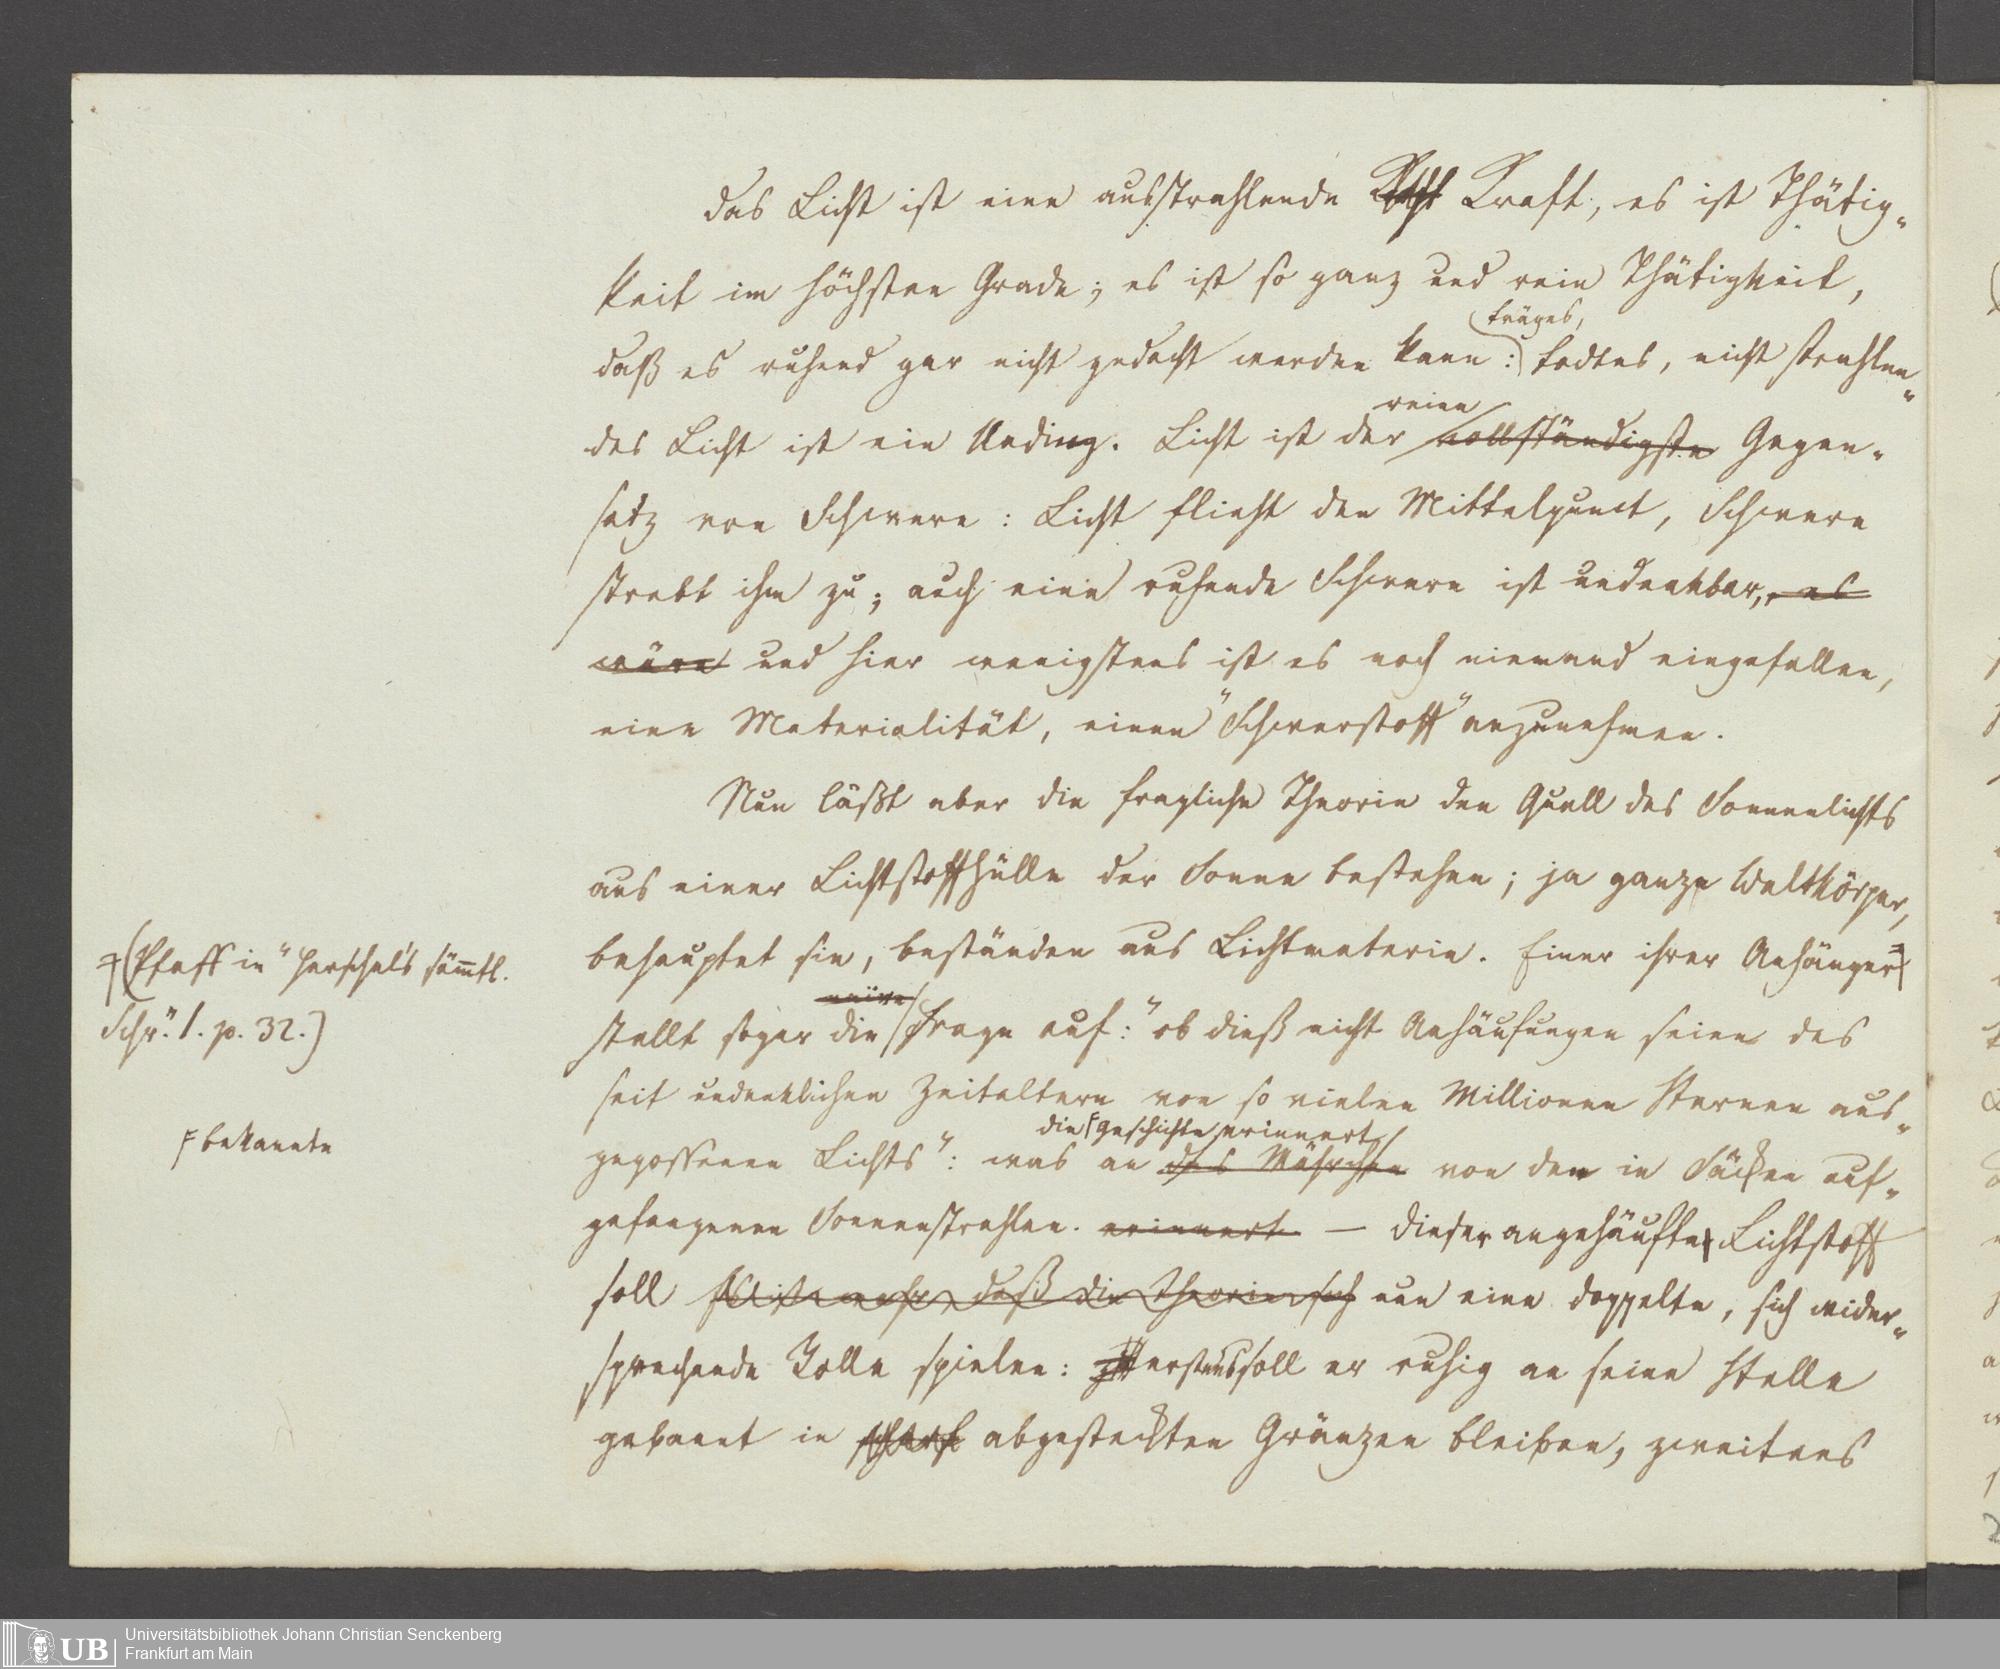 das Licht ist eine ausstrahlende Kraft, es ist Thätig-
keit im höchsten Grade; es ist so ganz und rein Thätigkeit,
träges,
daß es ruhend gar nicht gedacht werden kann: todtes, nicht strahlen-
reine
des Licht ist ein Unding. Licht ist der vollständigste Gegen-
satz von Schwere: Licht flieht den Mittelpunct, Schwere
strebt ihm zu; auch eine ruhende Schwere ist undenkbar, es
wäre und hier wenigstens ist es noch niemand eingefallen,
eine Materialität, einen "Schwerstoff" anzunehmen.
Nun läßt aber die fragliche Theorie den Quell des Sonnenlichts
aus einer Lichtstoffhülle der Sonne bestehen; ja ganze Weltkörper,
behauptet sie, beständen aus Lichtmaterie. Einer ihrer Anhänger
(Pfaff in "Herschel's sämtl.
Schr." 1. p. 32.)
naive
stellt sogar die Frage auf: "ob dieß nicht Anhäufungen seien des
seit undenklichen Zeitaltern von so vielen Millionen Sternen aus-
die Geschichte erinnert
bekannte
gegossenen Lichts": was an das Mährchen von den in Säcken auf-
gefangenen Sonnenstrahlen. erinnert — dieser angehäufte Lichtstoff
soll daß die Theorie nun eine doppelte, sich wider-
sprechende Rolle spielen: erstens soll er ruhig an seine Stelle
gebannt in scharf abgesteckten Gränzen bleiben, zweitens
Universitätsbibliothek Johann Christian Senckenberg
UB
Frankfurt am Main